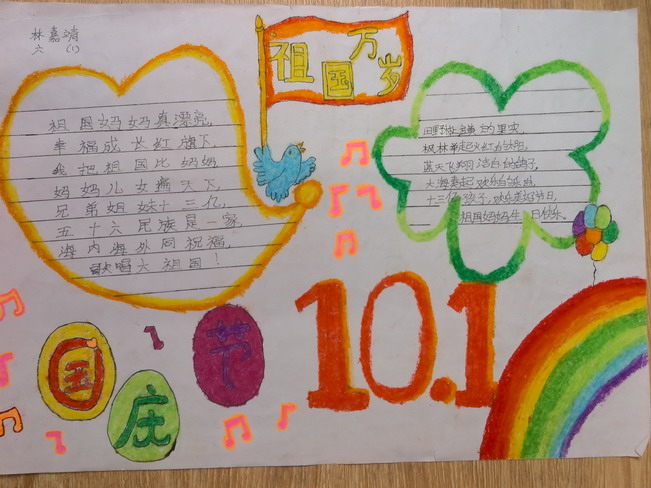 林嘉靖
六 (1)
祖国万岁
祖国妈妈真漂亮,
幸福成长红旗下,
我把祖国比妈妈
妈妈儿女满天下,
兄弟姐妹十三亿,
五十六民族是一家,
海内海外同祝福,
歌唱大祖国!
枫林举起火红的太阳,
蓝天飞翔洁白的鸽子,
大海奏起欢乐的乐曲,
十三亿孩子,欢乐美好节日,
祖国妈妈生日快乐。
国庆节
10.1